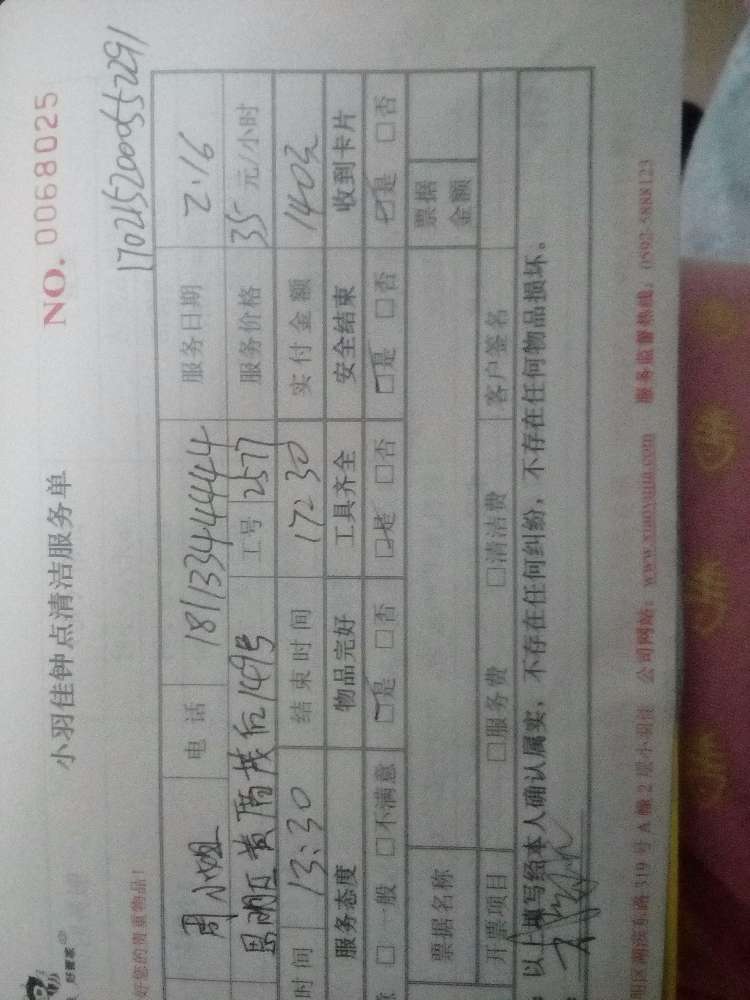 好慷家
小羽佳钟点清洁服务单
NO. 0068025
好您的贵重物品!
17021520005572291
周小姐 电话 18113344444 服务日期 2.16
思明区黄厝茂后149号 工号 2577 服务价格 35元/小时
时间 13:30 结束时间 17:30 实付金额 140元
服务态度 物品完好 工具齐全 安全结束 收到卡片
□一般 □不满意 □是 □否 □是 □否 □是 □否 □是 □否
票据名称 票据金额
开票项目 □服务费 □清洁费 客户签名
以上填写经本人确认属实,不存在任何纠纷,不存在任何物品损坏。
明区湖滨南路319号A幢2层小羽佳 公司网站:www.xiaoyujia.com 服务监督热线:0592-5888123